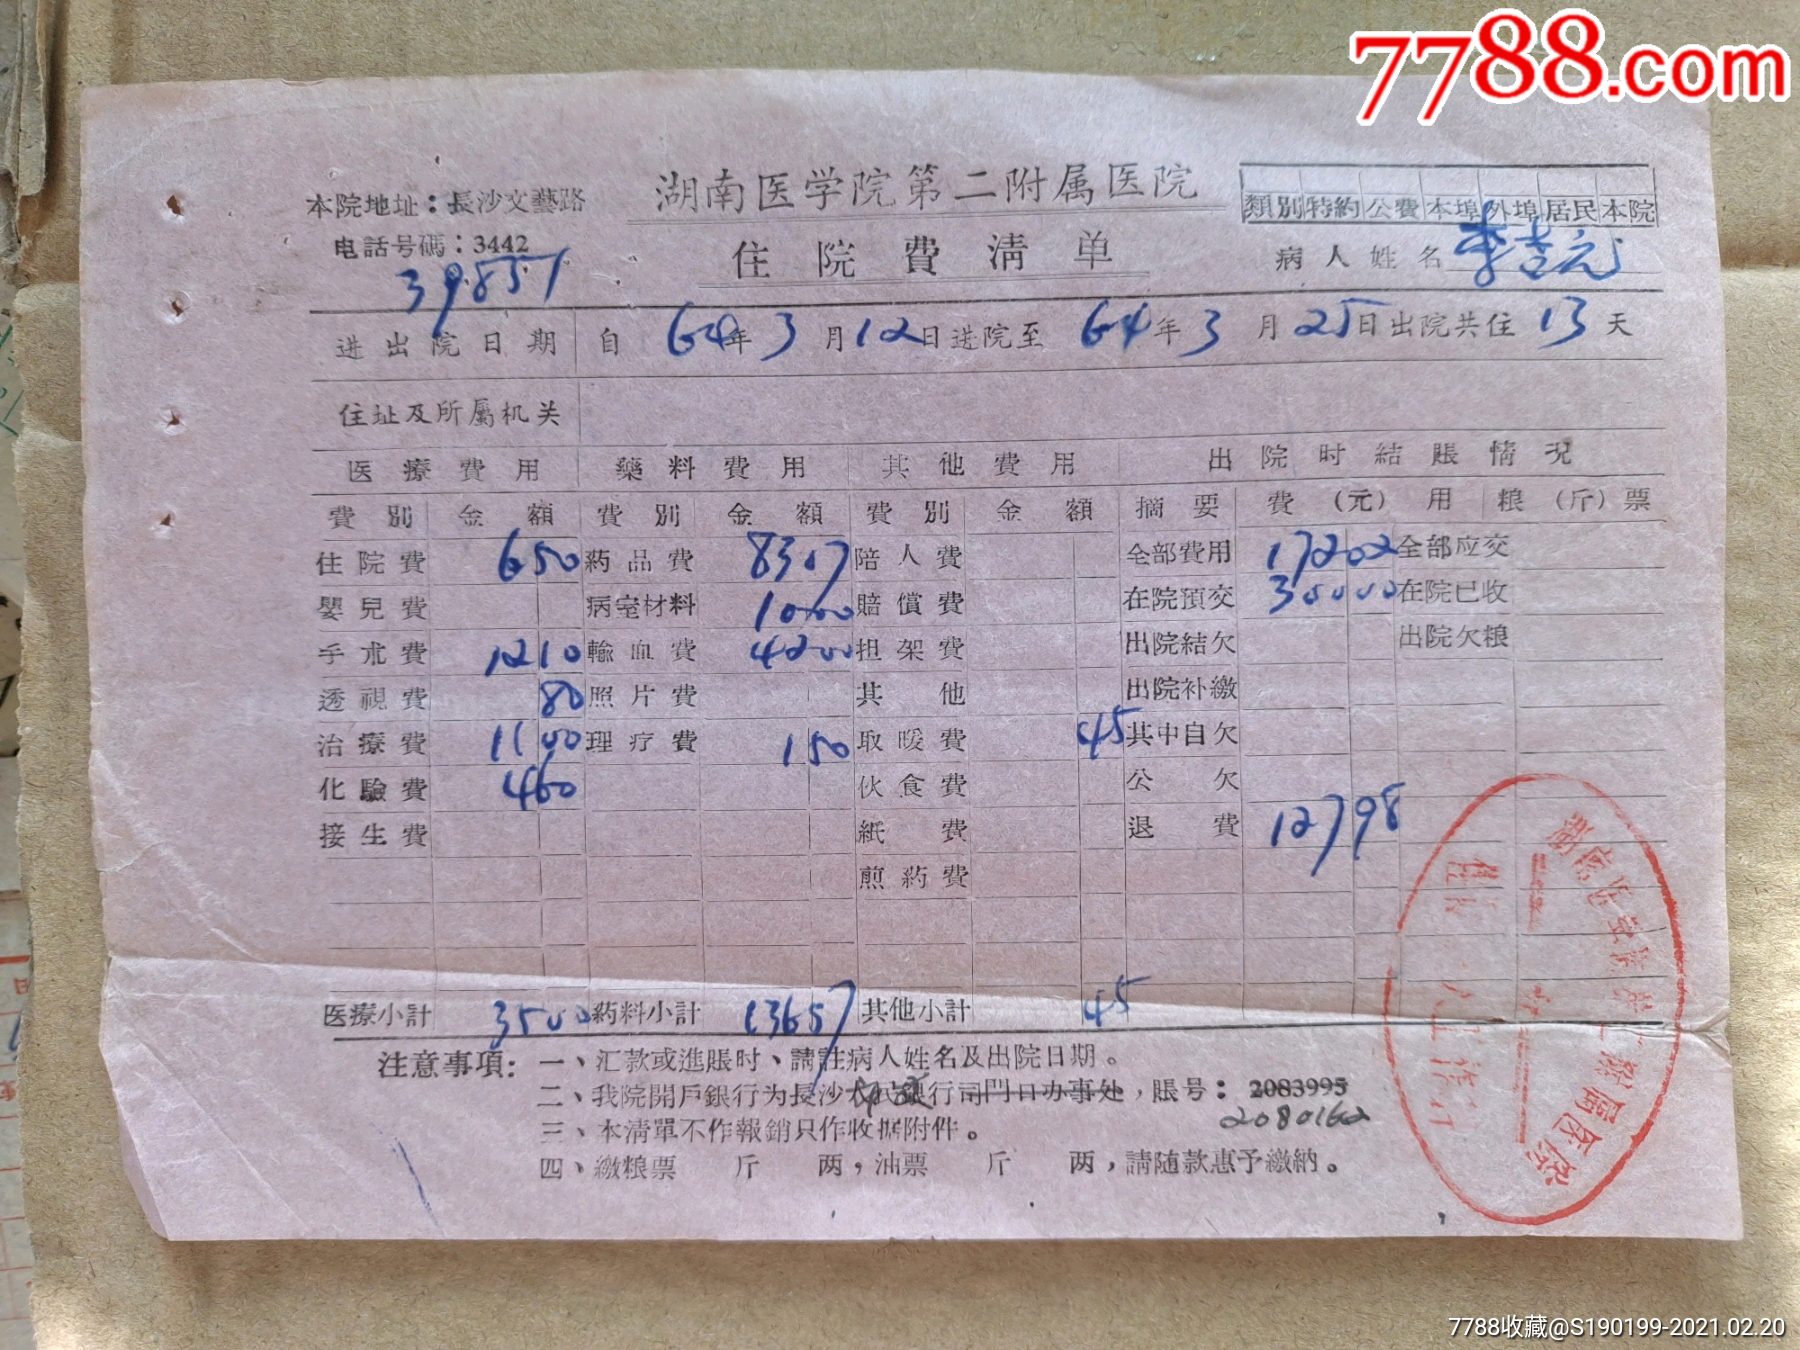 7788.com
湖南医学院第二附属医院
本院地址：長沙文藝路
电話号碼：3442
39857
住院費清单
類別 特約 公費 本埠 外埠 居民 本院
病人姓名 李吉元
进出院日期 自 64年 3月 12日进院至 64年 3月 25日出院共住 13天
住址及所屬机关
医療費用 藥料費用 其他費用 出院时結賬情况
費別 金額 費別 金額 費別 金額 摘要 費(元)用 粮(斤)票
住院費 650 葯品費 8307 陪人費 全部費用 17202 全部应交
嬰兒費 病室材料 1000 賠償費 在院預交 30000 在院已收
手朮費 1210 輸血費 4200 担架費 出院結欠 出院欠粮
透視費 80 照片費 其他 出院补繳
治療費 1100 理疗費 150 取暖費 45 其中自欠
化驗費 460 伙食費 公欠
接生費 紙費 退費 12798
煎葯費
医療小計 3500 葯料小計 13657 其他小計 45
注意事項：一、汇款或進賬时、請註病人姓名及出院日期。
二、我院開戶銀行为長沙銀行司門口办事处，賬号：2083995
2080162
三、本清單不作報銷只作收据附件。
四、繳粮票 斤 两，油票 斤 两，請随款惠予繳納。
7788收藏@S190199-2021.02.20